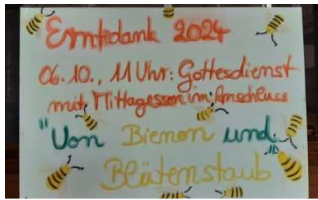 Erntedank 2024
06.10., 11 Uhr: Gottesdienst
mit Mittagessen im Anschluss
"Von Bienen und
Blütenstaub"